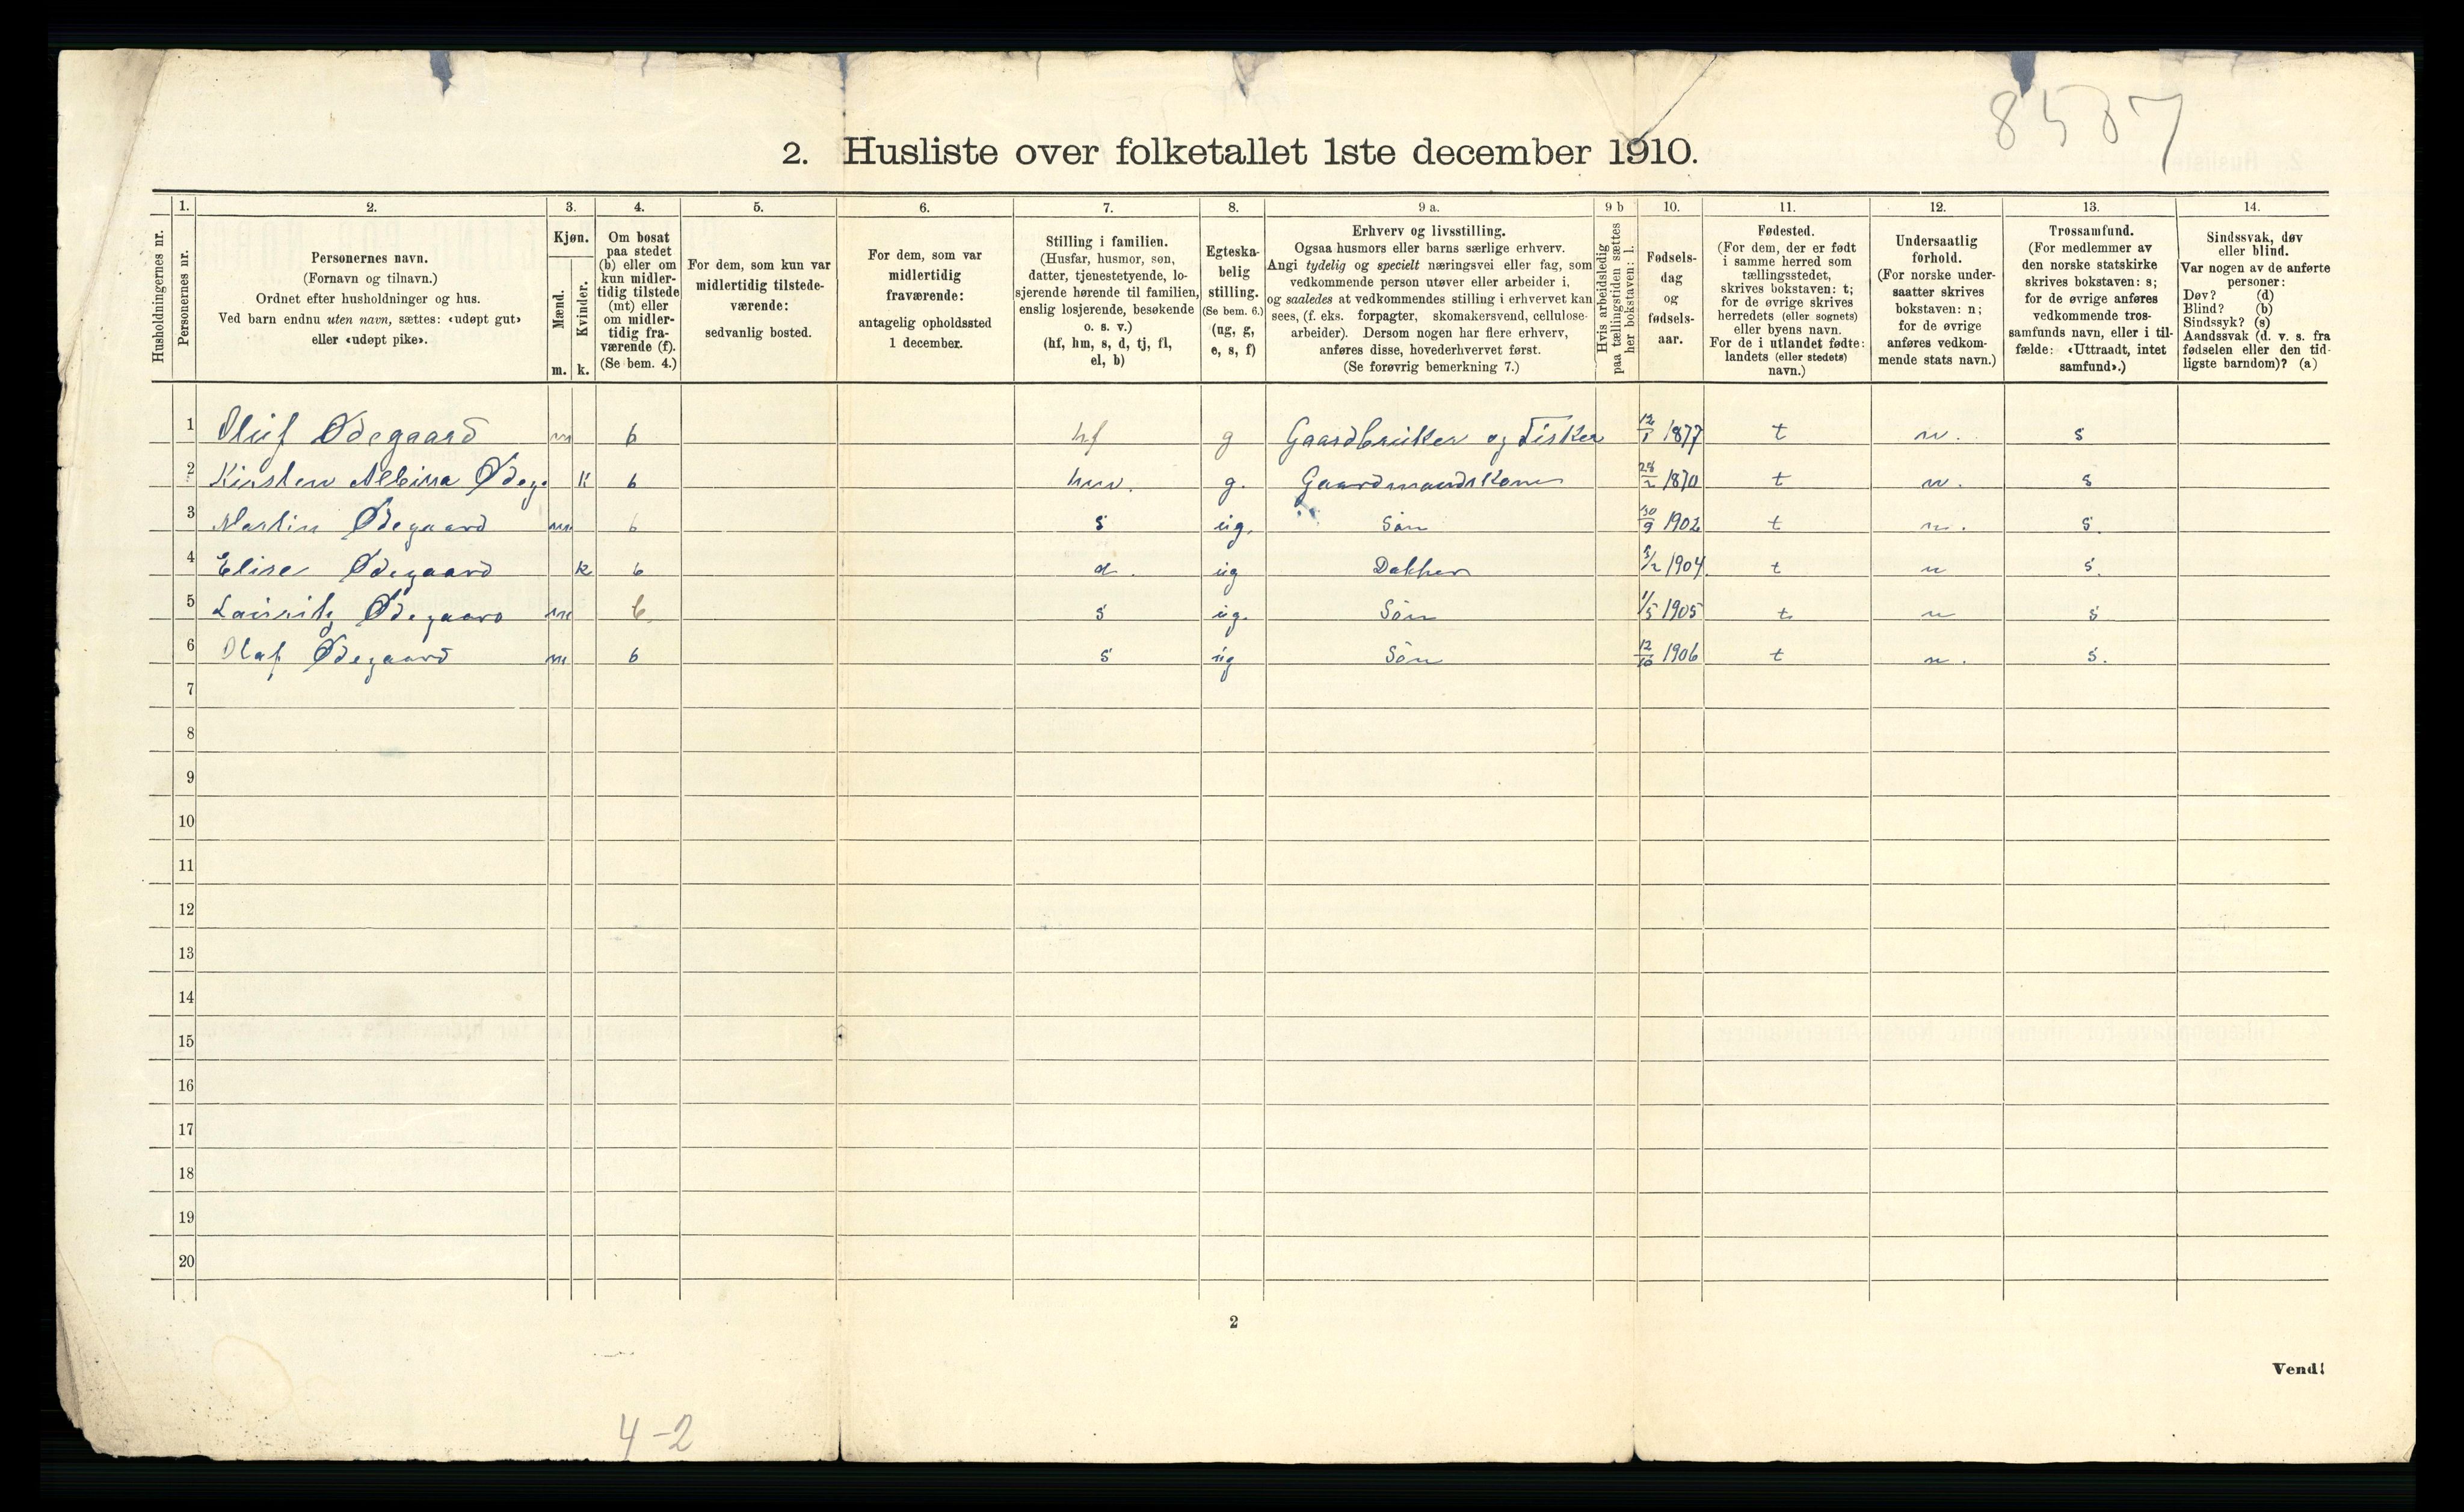 8587
2. Husliste over folketallet 1ste december 1910.
Husholdningernes nr.
1.
Personernes nr.
2.
Personernes navn.
(Fornavn og tilnavn.)
Ordnet efter husholdninger og hus.
Ved barn endnu uten navn, sættes: «udøpt gut»
eller «udøpt pike».
3.
Kjøn.
Mænd.
Kvinder.
m. k.
4.
Om bosat
paa stedet
(b) eller om
kun midler-
tidig tilstede
(mt) eller
om midler-
tidig fra-
værende (f).
(Se bem. 4.)
5.
For dem, som kun var
midlertidig tilstede-
værende:
sedvanlig bosted.
6.
For dem, som var
midlertidig
fraværende:
antagelig opholdssted
1 december.
7.
Stilling i familien.
(Husfar, husmor, søn,
datter, tjenestetyende, lo-
sjerende hørende til familien,
enslig losjerende, besøkende
o. s. v.)
(hf, hm, s, d, tj, fl,
el, b)
8.
Egteska-
belig
stilling.
(Se bem. 6.)
(ug, g,
e, s, f)
9 a.
Erhverv og livsstilling.
Ogsaa husmors eller barns særlige erhverv.
Angi tydelig og specielt næringsvei eller fag, som
vedkommende person utøver eller arbeider i,
og saaledes at vedkommendes stilling i erhvervet kan
sees, (f. eks. forpagter, skomakersvend, cellulose-
arbeider). Dersom nogen har flere erhverv,
anføres disse, hovederhvervet først.
(Se forøvrig bemerkning 7.)
9 b
Hvis arbeidsledig
paa tællingstiden sættes
her bokstaven: l.
10.
Fødsels-
dag
og
fødsels-
aar.
11.
Fødested.
(For dem, der er født
i samme herred som
tællingsstedet,
skrives bokstaven: t;
for de øvrige skrives
herredets (eller sognets)
eller byens navn.
For de i utlandet fødte:
landets (eller stedets)
navn.)
12.
Undersaatlig
forhold.
(For norske under-
saatter skrives
bokstaven: n;
for de øvrige
anføres vedkom-
mende stats navn.)
13.
Trossamfund.
(For medlemmer av
den norske statskirke
skrives bokstaven: s;
for de øvrige anføres
vedkommende tros-
samfunds navn, eller i til-
fælde: «Uttraadt, intet
samfund».)
14.
Sindssvak, døv
eller blind.
Var nogen av de anførte
personer:
Døv? (d)
Blind? (b)
Sindssyk? (s)
Aandssvak (d. v. s. fra
fødselen eller den tid-
ligste barndom)? (a)
1 Oluf Ødegaard m b hf g Gaardbruker og Fisker 12/1 1877 t n. s
2 Kirsten Albina Ødeg. k b hm. g. Gaardmandskone 28/2 1870 t n. s
3 Martin Ødegaard m b s ug. Søn 30/9 1902 t n. s.
4 Elise Ødegaard k b d. ug Datter 1904. t n s.
5 Lauritz Ødegaard m b s ug. Søn 1/5 1905 t n s
6 Olaf Ødegaard m b s ug Søn 12/10 1906 t n. s.
7
8
9
10
11
12
13
14
15
16
17
18
19
20
2
Vend!
4-2